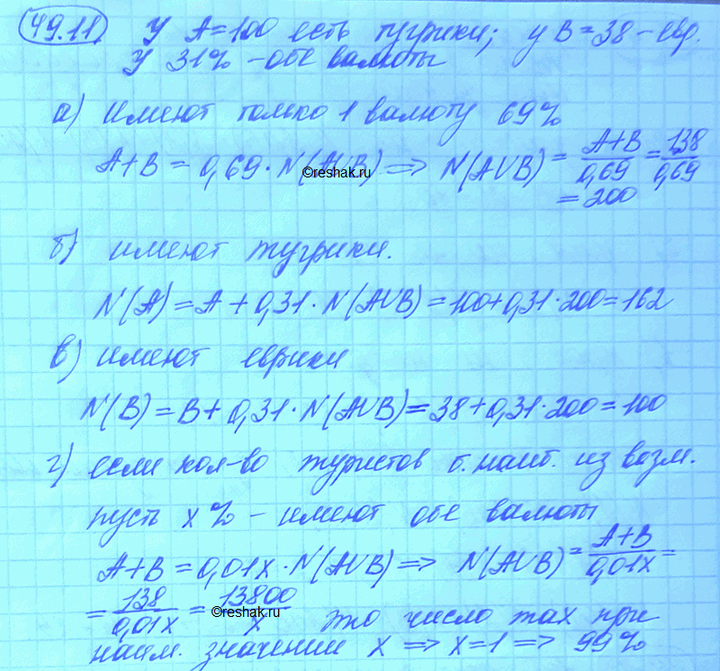 49.11. У А=100 есть тугрики; у В=38 – евр.
У 31% – обе валюты
а) имеют только 1 валюту 69%
A+B = 0,69·N(A∪B) ⇒ N(A∪B) = (A+B)/0,69 = 138/0,69
= 200
©reshak.ru
б) имеют тугрики.
N(A) = A + 0,31·N(A∪B) = 100+0,31·200 = 162
в) имеют еврики
N(B) = B + 0,31·N(A∪B) = 38+0,31·200 = 100
г) если кол-во туристов б. наиб. из возм.
пусть x% – имеют обе валюты
A+B = 0,01x·N(A∪B) ⇒ N(A∪B) = (A+B)/0,01x =
= 138/0,01x = 13800/x это число max при
©reshak.ru
наим. значении x ⇒ x=1 ⇒ 99%